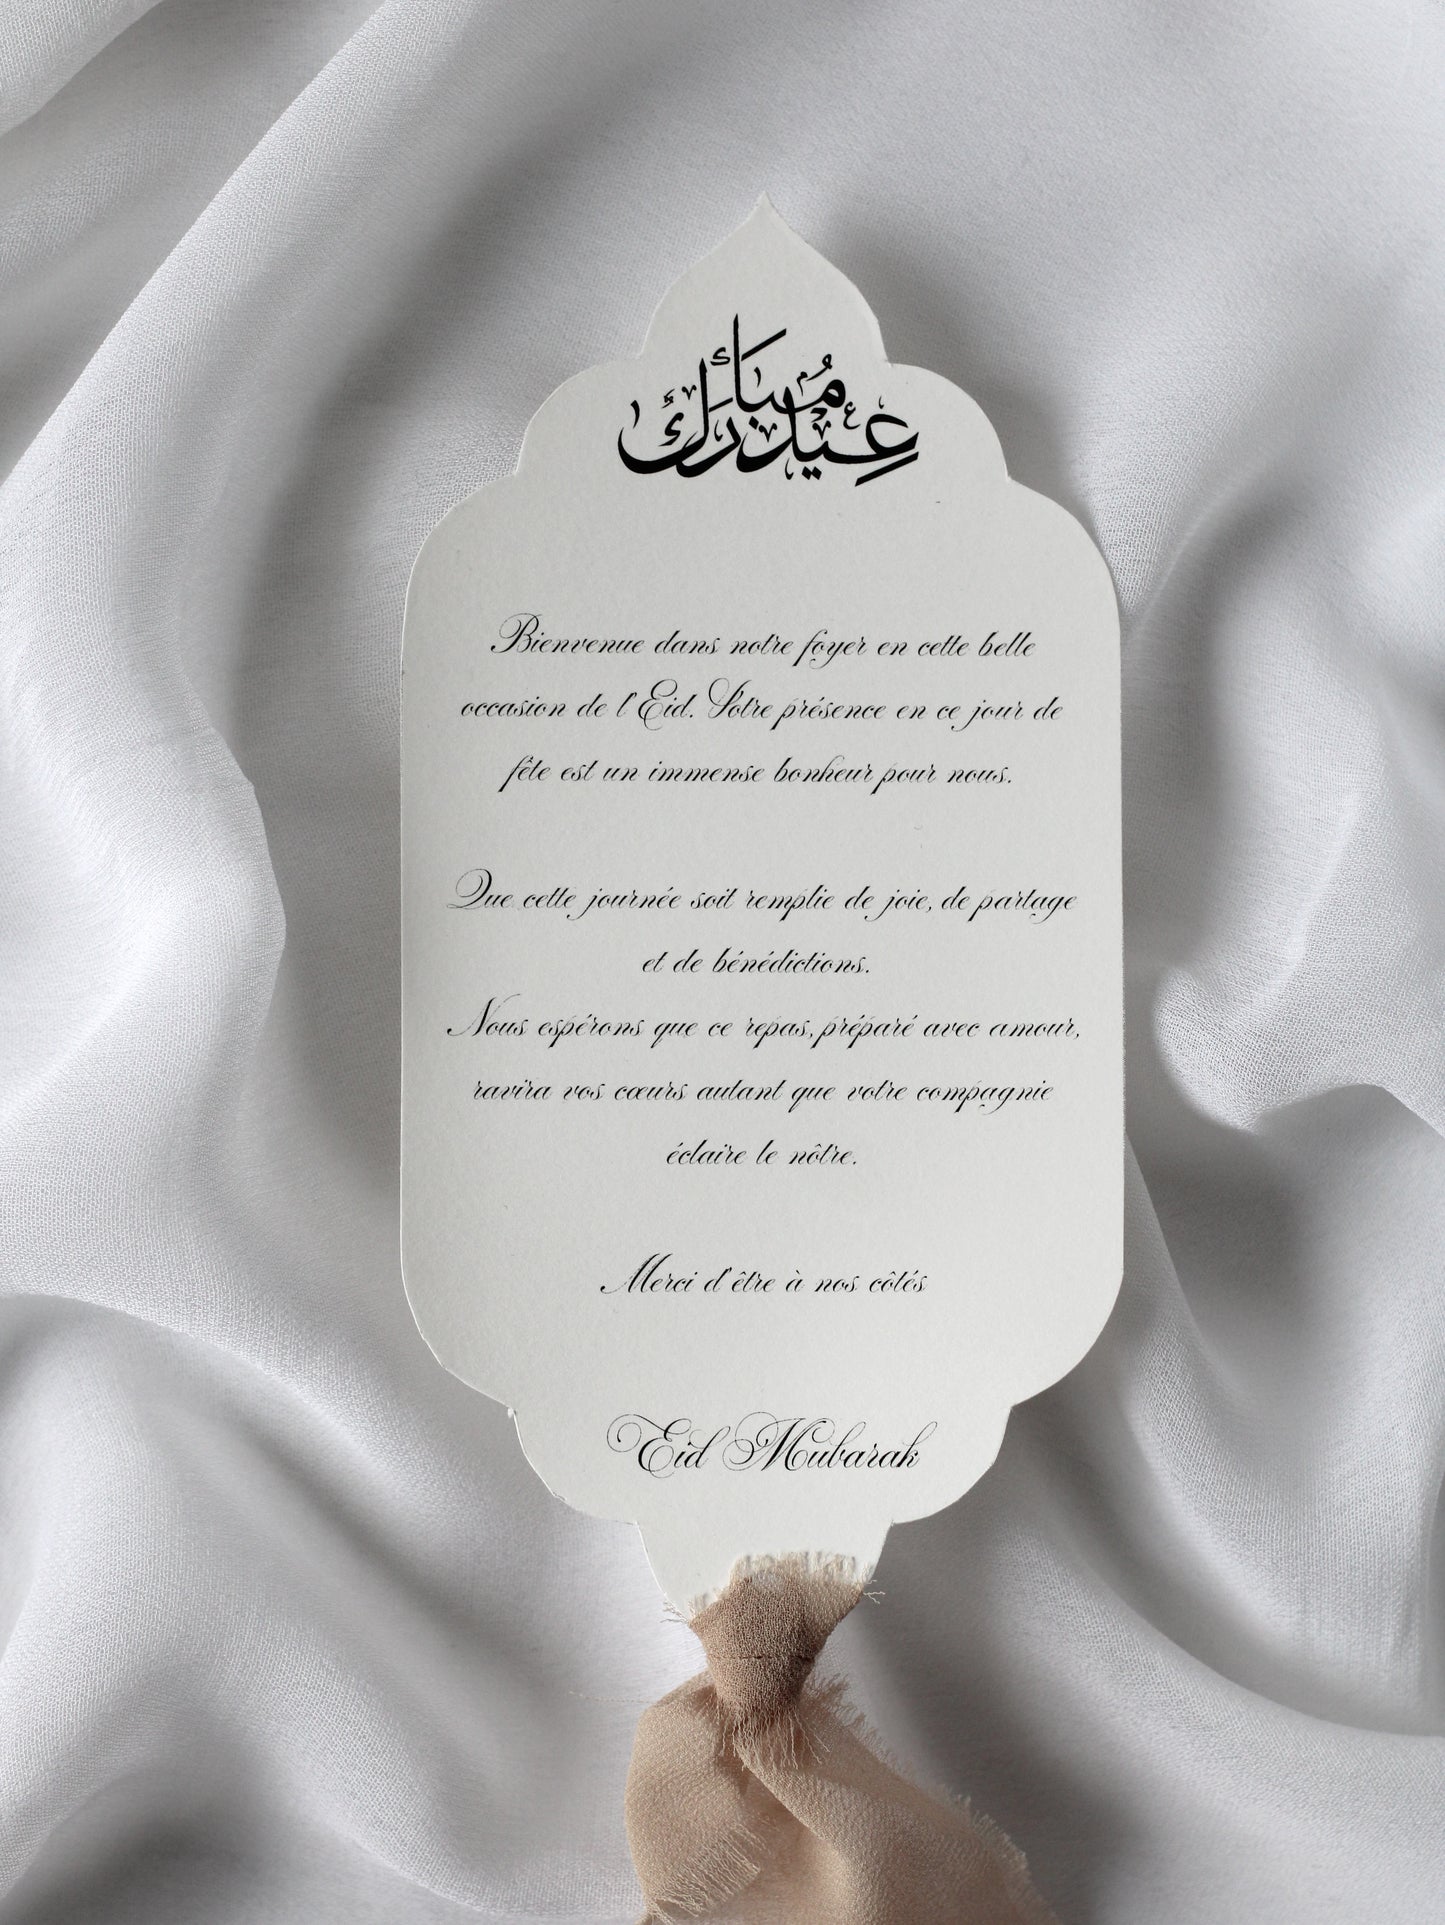 عيد مبارك
Bienvenue dans notre foyer en cette belle
occasion de l'Eid. Votre présence en ce jour de
fête est un immense bonheur pour nous.
Que cette journée soit remplie de joie, de partage
et de bénédictions.
Nous espérons que ce repas, préparé avec amour,
ravira vos cœurs autant que votre compagnie
éclaire le nôtre.
Merci d'être à nos côtés
Eid Mubarak